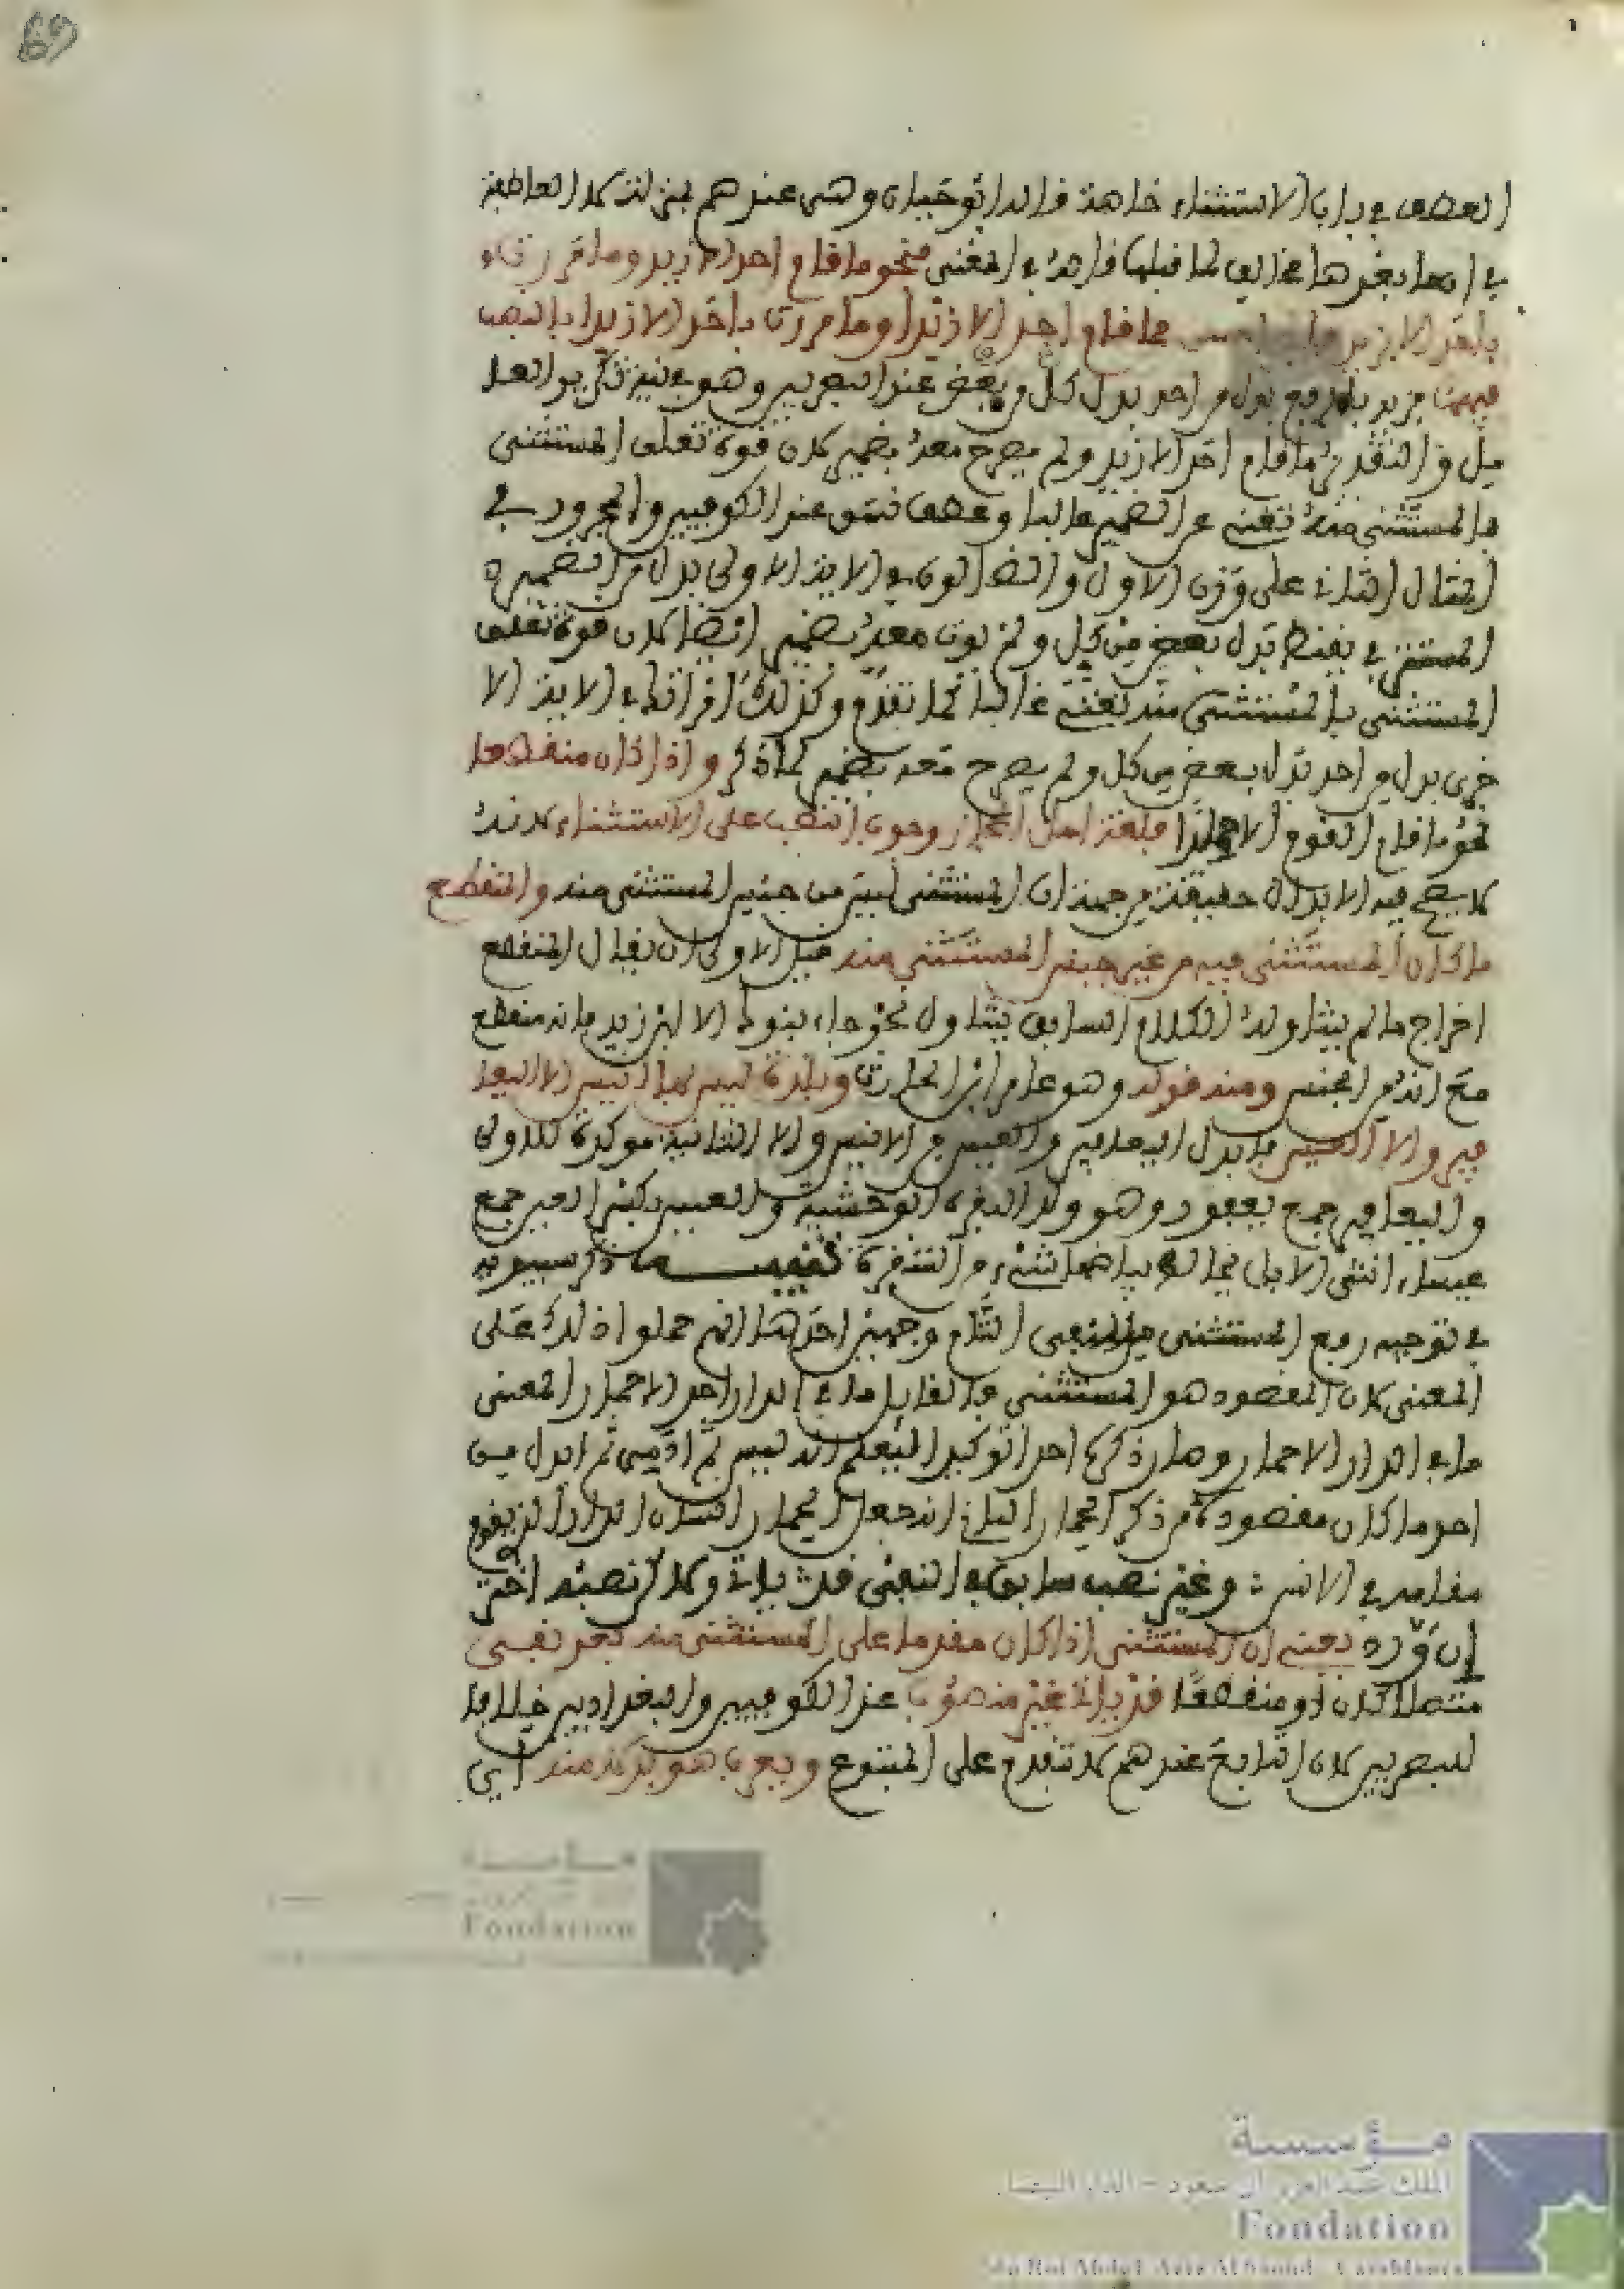 69
العطف في باب الاستثناء خاصة قاله ابو حيان وهي عندهم بمنزلة لا العاطفة
في ان ما بعدها مخالف لما قبلها قاله في المغني فنحو ما قام احد الا زيد وما مررت
باحد الا زيد احسن ما قام احد الا زيدا وما مررت باحد الا زيدا بالنصب
فيهما فزيد بالرفع بدل من احد بدل كل من بعض عند البصريين وهو في نية تكرير العا
مل والتقدير ما قام احد الا زيد ولم يصرح معه بضمير لان قوة تعلق المستثنى
بالمستثنى منه تغني عن الضمير غالبا وعطف نسق عند الكوفيين والمجرور في
المثال الثاني على وزن الاول والضالون في الاية الاولى بدل من الضمير
المستتر في يقنط بدل بعض من كل ولم يؤت معه بضمير ايضا لان قوة تعلق
المستثنى بالمستثنى منه تغني غالبا كما تقدم وكذلك امراتك في الاية الا
خرى بدل من احد بدل بعض من كل ولم يصرح معه بضمير لما ذكر واذا كان منقطعا
نحو ما قام القوم الا حمارا فلغة اهل الحجاز وجوب النصب على الاستثناء لانه
لا يصح فيه الابدال حقيقة من جهة ان المستثنى ليس من جنس المستثنى منه والمنقطع
ما كان المستثنى فيه من غير جنس المستثنى منه قيل الاولى ان يقال المنقطع
اخراج ما لم يتناوله الكلام السابق يتناول نحو جاء بنوك الا ابن زيد فانه منقطع
مع انه من الجنس ومنه قوله وهو عامر ابن الحارث وبلدة ليس بها انيس الا اليعا
فير والا العيس فابدل اليعافير والعيس من الانيس والا الثانية موكدة للاولى
واليعافير جمع يعفور وهو ولد البقرة الوحشية والعيس بكسر العين جمع
عيساء انثى الابل يخالط بياضها شيء من الشقرة تنبيه ذكر سيبويه
في توجيه رفع المستثنى من المنفي التام وجهين احدهما انهم حملوا ذلك على
المعنى لان المقصود هو المستثنى فالقايل ما في الدار احد الا حمار المعنى
ما في الدار الا حمار وصار ذكر احد توكيدا ليعلم انه ليس ثم ادمي ثم ابدل من
احد ما كان مقصوده من ذكر الحمار الثاني انه جعل الحمار انسان الدار الذي يقوم
مقامه في الانس وغير نصب سابق في النفي قد ياتي ولكن نصبه اختر
ان ورد يعني ان المستثنى اذا كان مقدما على المستثنى منه بعد نفي
متصلا كان او منقطعا قد ياتي غير منصوب عند الكوفيين والبغداديين خلافا
للبصريين لان التابع عندهم لا تتقدم على المتبوع ويعرب هو بدلا منه اي
مؤسسة
الملك عبد العزيز آل سعود - الدار البيضاء
Fondation
du Roi Abdul-Aziz Al Saoud - Casablanca